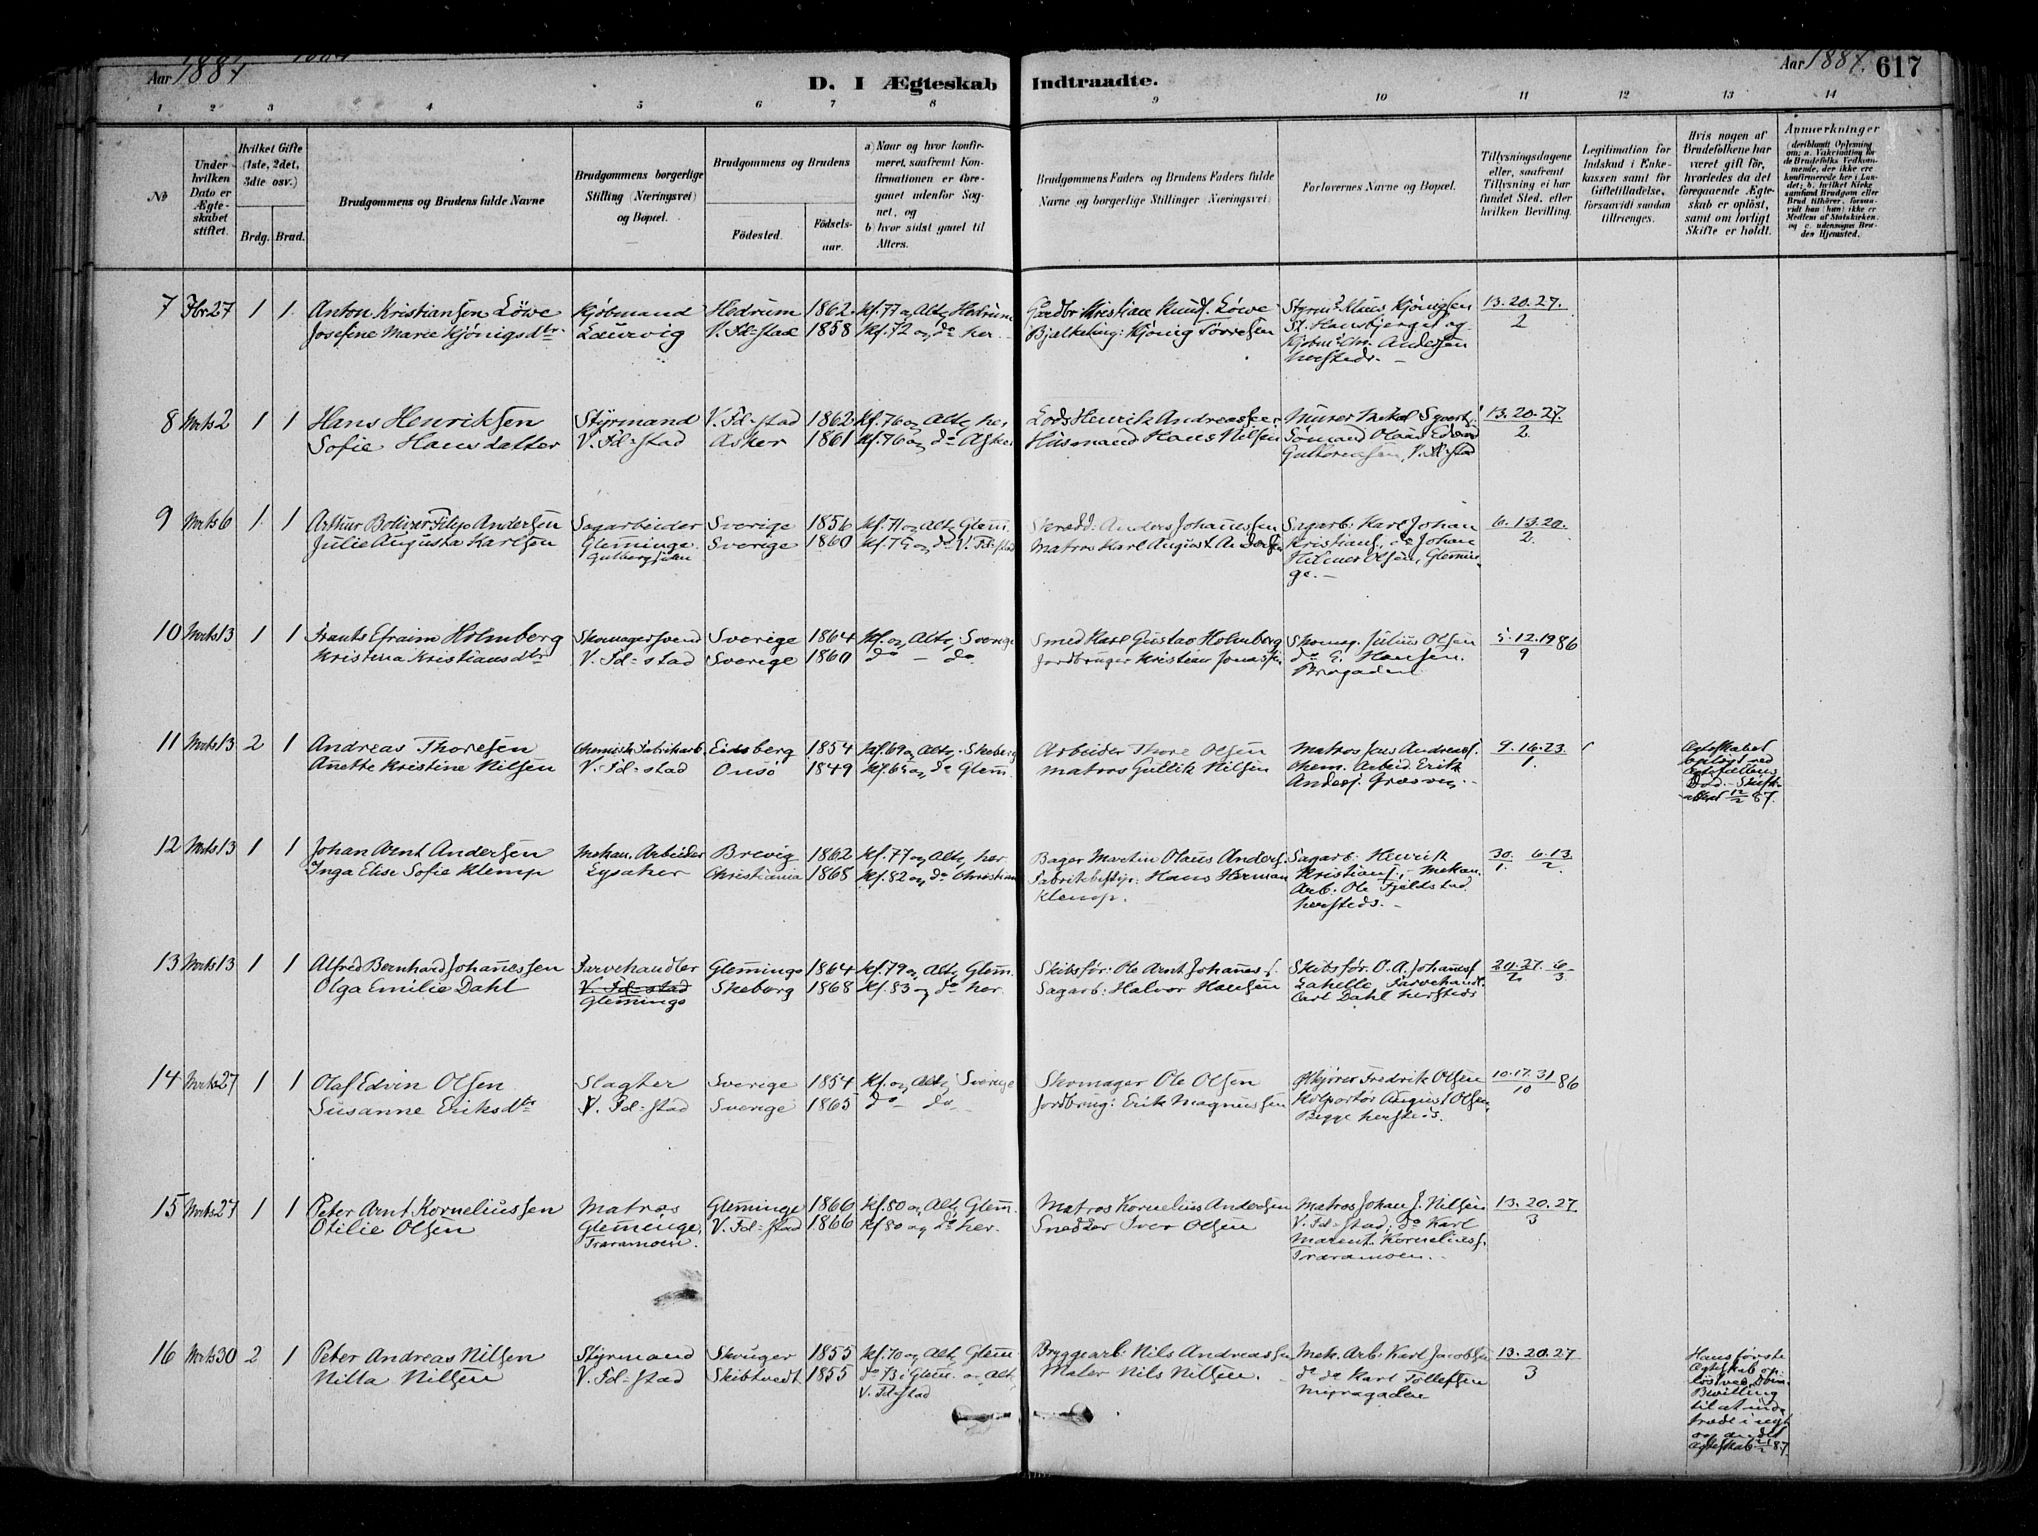 Aar 1887.
D. I Ægteskab Indtraadte.
Aar 1887. 617
1 2 3 4 5 6 7 8 9 10 11 12 13 14
No
Under hvilken Dato er Ægteskabet stiftet.
Hvilket Gifte (1ste, 2det, 3die osv.)
Brdg. Brud.
Brudgommens og Brudens fulde Navne
Brudgommens borgerlige Stilling (Næringsvei) og Bopæl.
Brudgommens og Brudens
Fødested. Fødselsaar.
a) Naar og hvor konfirmeret, saafremt Konfirmationen er foregaaet udenfor Sognet, og
b) hvor sidst gaaet til Alters.
Brudgommens Faders og Brudens Faders fulde Navne og borgerlige Stillinger (Næringsvei)
Forlovernes Navne og Bopæl.
Tillysningsdagene eller, saafremt Tillysning ei har fundet Sted, efter hvilken Bevilling.
Legitimation for Indskud i Enkekassen samt for Giftetilladelse, forsaavidt saadan tiltrænges.
Hvis nogen af Brudefolkene har været gift før, hvorledes da det foregaaende Ægteskab er opløst, samt om lovligt Skifte er holdt.
Anmærkninger
(deriblandt Oplysning om: a. Vaksination for de Brudefolks Vedkommende, der ikke ere konfirmerede her i Landet; b. hvilket Kirkesamfund Brudgom eller Brud tilhører, forsaavidt han (hun) ikke er Medlem af Statskirken, og c. udensogns Brudens Hjemsted.
7 Fbr 27 1 1 Anton Kristiansen Löwe Kjøbmand Hedrum 1862 Kf. 77 og Alts Hedrum Gaardbr Kristian Knuds. Löwe Styrmd Klaus Kjönigsen 13. 20. 27.
Josefine Marie Kjönigsdtr Laurvig V. Fd-stad 1858 Kf. 72 og do her. Bjelkeling: Kjönig Torresen St. Hansbjerget og 2
Kjøbmd Chr. Andersen
hersteds. -
8 Mrts 2 1 1 Hans Henriksen Styrmand V. Fd-stad 1862 Kf. 76 og Alts her Lods Henrik Andreassen Murer 13. 20. 27.
Sofie Hansdatter V. Fd-stad Asker 1861 Kf. 76 og do Asker Husmand Hans Nilsen Sømand Olaus Edvard 2.
V. Fd-stad
9 Mrts 6 1 1 Arthur Filip Andersen Sagarbeider Sverige 1856 Kf. 71 og Alts Glem. Skrædd: Anders Johannessen Sagarb: Karl Johan 6. 13. 20.
Julie Augusta Karlsen Glemminge Sverige 1860 Kf. 75 og do V. Fd-stad Matros Karl August Andersen Kristians., do Johan 2.
Hilmer Olsen, Glemmin-
ge. -
10 Mrts 13 1 1 Frants Efraim Holmberg Skomagersvend Sverige 1864 Kf. og Alts Sverige Smed Karl Gustav Holmberg Skomag. Julius Olsen 5. 12. 19 86
Kristina Kristiansdtr V. Fd-stad Sverige 1860 do - do Jordbruger Kristian Jonassen do E. Hansen. 9
11 Mrts 13 2 1 Andreas Thoresen Chemisk Fabrikarb. Eidsberg 1854 Kf. 69 og Alts. Skeberg Arbeider Thore Olsen Matros Jens Andreass. 9. 16. 23.
Anette Kristine Nilsen V. Fd-stad Onsö 1849 Kf. 65 og do Glem. Matros Gullik Nilsen chem. Arbeid. Erik 1.
Anders.
Egteskabet
opløst ved
Egtefællens
Død. - Skifte-
attest 12/2 87.
12 Mrts 13 1 1 Johan Arnt Andersen Mekan. Arbeider Brevig 1862 Kf. 77 og Alts her Bager Martin Olaus Anders. Sagarb: Henrik 30. 6. 13
Inga Elise Sofie Klemp Lysaker Christiania 1868 Kf. 82 og do Christiania Fabrikbestyr: Hans Herman Kristians., - Mekan. 1. 2.
Klemp. Arb: Ole Fjeldstad
hersteds. -
13 Mrts 13 1 1 Alfred Bernhard Johannessen Farvehandler Glemminge 1864 Kf. 79 og Alts Glem. Skibsfør: Ole Arnt Johannes. Skibsfør. O. A. Johannes. 20. 27. 6
Olga Emilie Dahl V. Fd-stad Skeberg 1868 Kf. 83 og do her. Sagarb: Halvor Hansen Farvehandl. 2 3
Glemminge Carl Dahl hersteds
14 Mrts 27 1 1 Olaf Edvin Olsen Slagter Sverige 1854 Kf. og Alts Sverige Skomager Ole Olsen Fredrik Olsen 10. 17. 31 86
Susanne Eriksdtr V. Fd-stad Sverige 1865 do - do Jordbrug: Erik Magnussen Kolportør August Olsen, 10
Begge hersteds.
15 Mrts 27 1 1 Peter Arnt Korneliussen Matros Glemminge 1866 Kf. 80 og Alts Glem. Matros Kornelius Andersen Matros Johan J. Nilsen 13. 20. 27.
Otilie Olsen Glemminge, V. Fd-stad 1866 Kf 80 og do her. Snedker Iver Olsen V. Fd-stad; do Karl 3
Traramoen. Korneliuss.
Traramoen. -
16 Mrts 30 2 1 Peter Andreas Nilsen Styrmand Skruger 1855 Kf. 70 og Alts Glem Bryggearb: Nils Andreassen Mek. Arb: Karl Jacobsen 13. 20. 27
Nilla Nilsen V. Fd-stad Skibtvedt 1855 do 73 i Glem. og Alt. Maler Nils Nilsen. do do Karl Tollefsen 3
V. Fd-stad
Hans første
Egteskab op-
løst ved
Bevilling
til at ind-
træde i nyt
Egteskab 21/2 87.